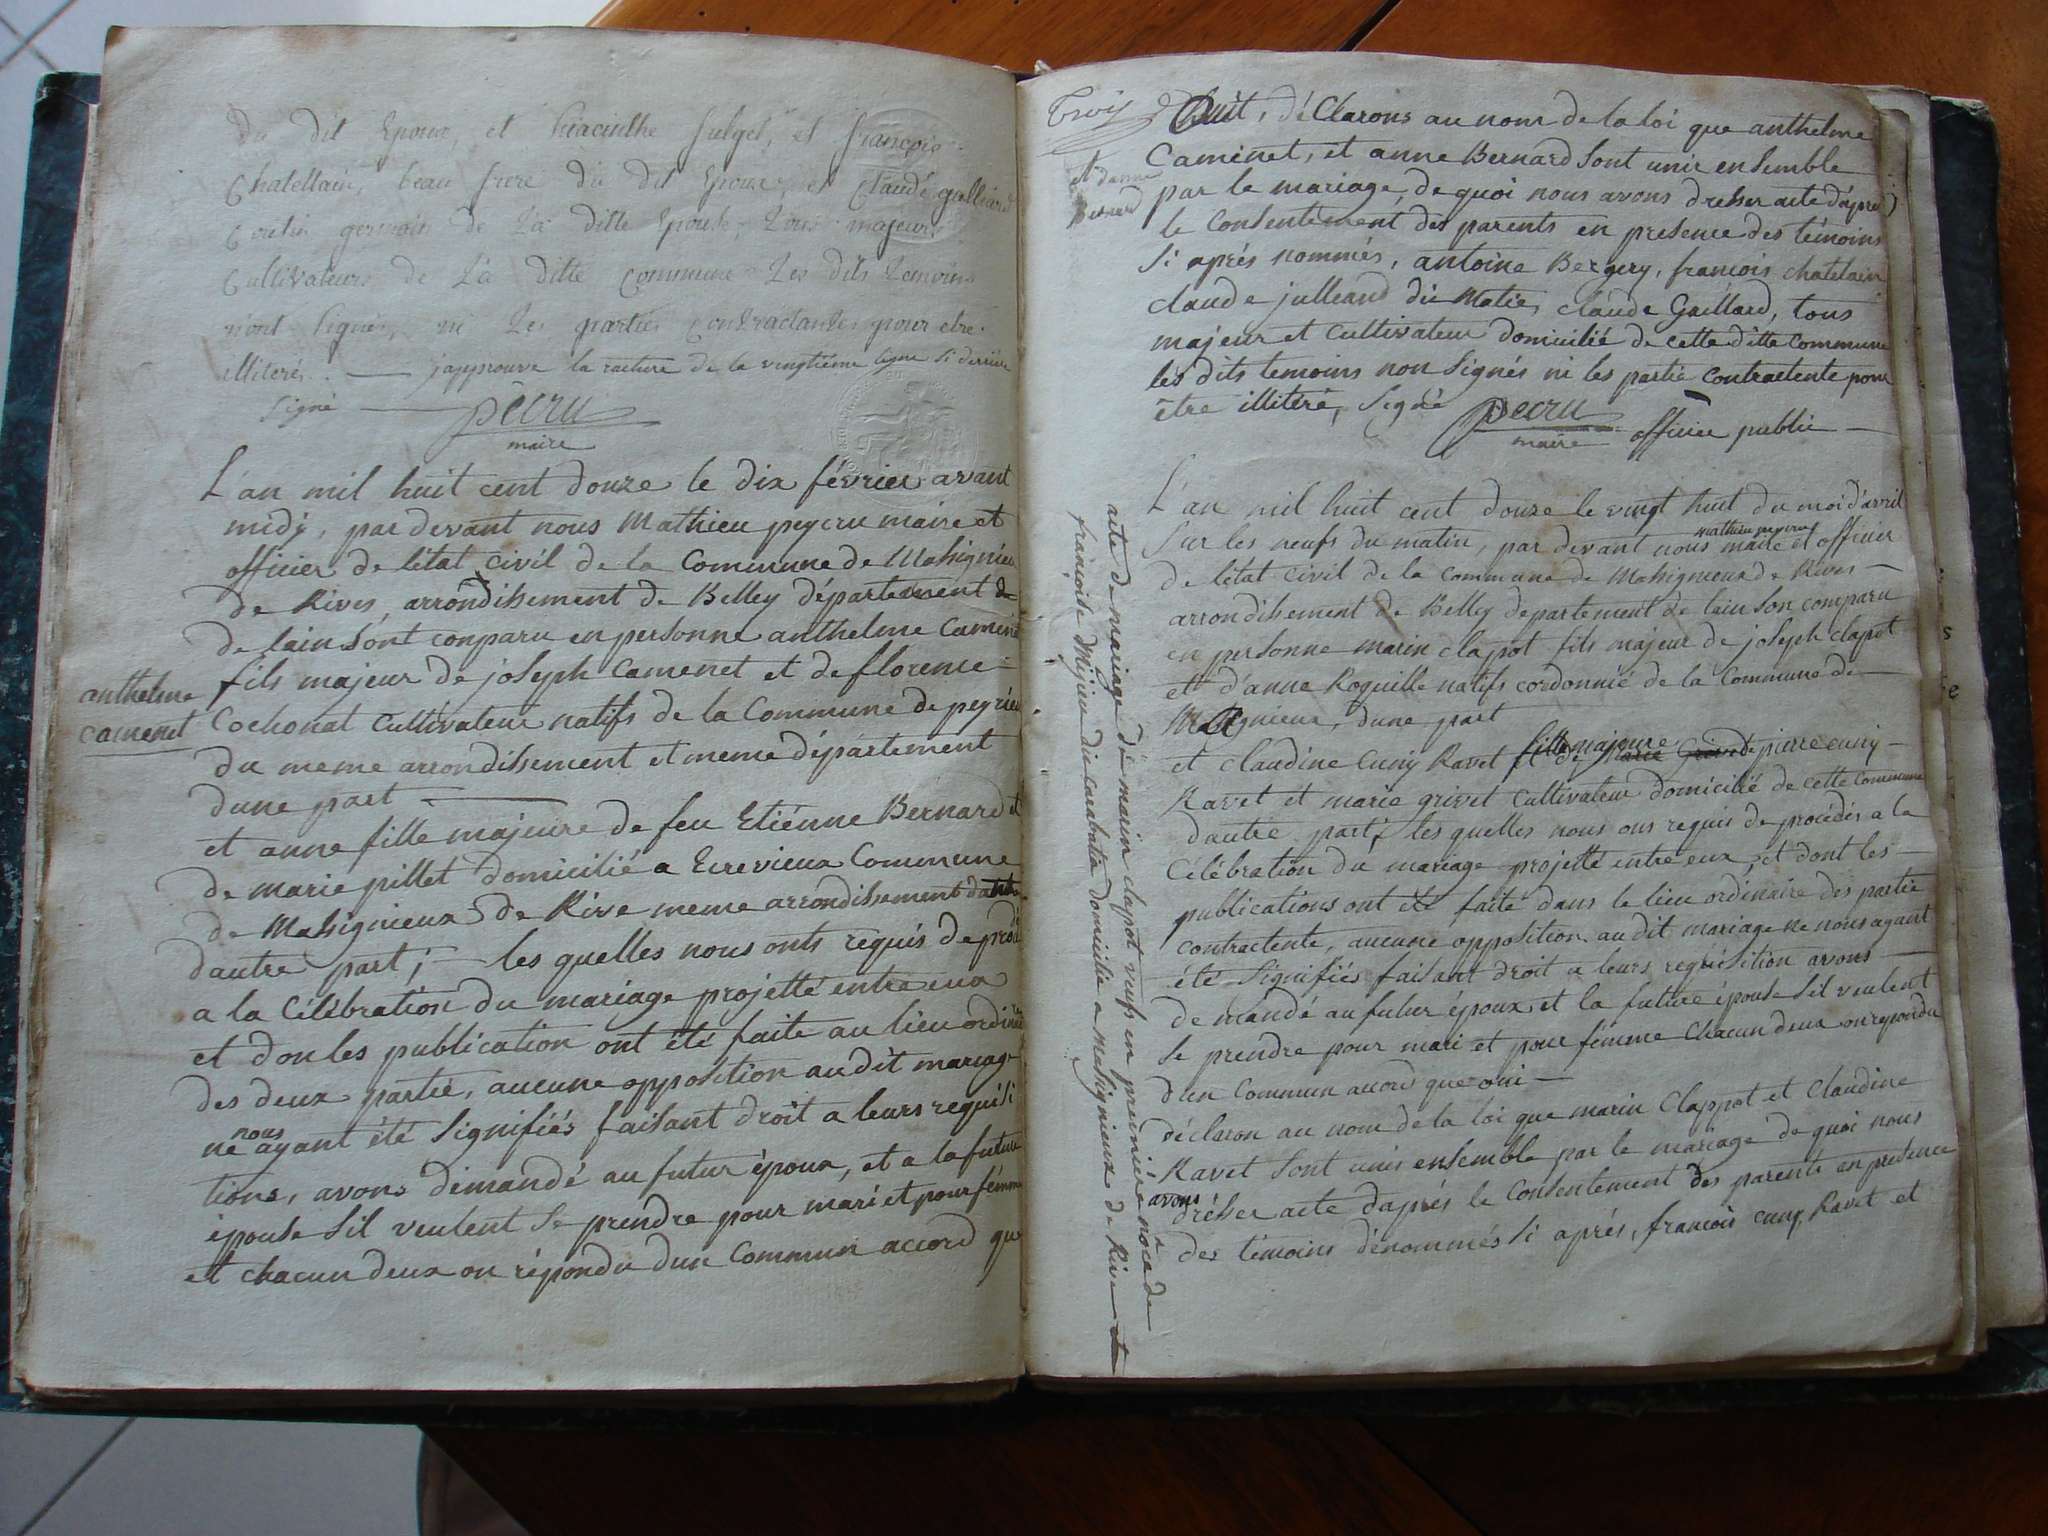 Du dit Epoux, et hiacinthe Sulget, et françois
Chatellain, beau frere du dit Epoux, et Claude gallian
germain de La ditte Epouse, tous majeurs
Cultivateurs de La ditte commune Les dits Temoins
n'ont Signés, ni Les parties Contractantes pour etre
illiteré. — japprouve la rature de la vingtieme ligne Si derriere
Signé — pecru
maire
L'an mil huit cent douze le dix février avant
midy, par devant nous Mathieu peycru maire et
officier de létat civil de la Commune de Massignieu
de Rives, arrondissement de Belley département de
de lain Sont conparu en personne anthelme Camenet
anthelme
camenet
fils majeur de joseph Camenet et de florence
Cochonat Cultivateur natifs de la Commune de peyrieu
du meme arrondissement et meme département
dune part —
et anne fille majeure de feu Etiénne Bernard et
de marie pillet domicilié a Ecrevieux Commune
de Massignieux de Rive meme arrondissement dautre
dautre part; — les quelles nous onts requis de procé
a la Célébration du mariage projetté entre eux
et don les publication ont été faite au lieu ordinaire
des deux partie, aucune opposition audit mariage
ne nous ayant été Signifiés faisant droit a leurs requisi
tions, avons demandé au futur époux, et a la future
épouse Sil veulent Se prendre pour mari et pour fémme
et chacun deux on répondu dun Commun accord que
Trois
Ouit, déClarons au nom de la loi que anthelme
et danne
Bernard
Camenet, et anne Bernard Sont unir ensemble
par le mariage, de quoi nous avons dresser acte d'après
le Consentément des parents en presence des témoins
Si aprés nommés, antoine Bergery, francois chatelain
claude julleand dit Matie, claude Gaillard, tous
majeur et Cultivateur domicilié de cette ditte Commune
les dits temoins non Signés ni les partie Contractente pour
être illiteré, Signé pecru
maire officier public —
L'an mil huit cent douze le vingt huit du moi d'avril
Sur les neufs du matin, par devant nous mathieu peycru maire et officier
de létat civil de la Commune de Massignieux de Rives —
arrondissement de Belley departement de lain Son comparu
en personne marin clapot fils majeur de joseph clapot
et d'anne Roquille natifs cordonnié de la Commune de —
Massignieux, dune part
et claudine Cuny Ravet fille majeure de pierre cuny —
Ravet et marie grivet Cultivateur domicilié de cette Commune
dautre part, les quelles nous ons requis de procédér a la
Célébration du mariage projetté entre eux, et dont les —
publications ont été faite dans le lieu ordinaire des partie
contractente, aucune opposition au dit mariage ne nous ayant
été Signifiés faisant droit a leurs requisition avons —
demandé au futur époux et la future épouse Sil veulent
Se prendre pour mari et pour fémme Chacun deux on repondu
d'un Commun acord que oui —
déclaron au nom de la loi que marin Clappot et Claudine
Ravet Sont unis ensemble par le mariage de quoi nous
avons dresser acte daprés le Consentement des parents en presence
des témoins dénommés Si aprés, francois cuny Ravet et
acte de mariage de marin clapot veufs en premiére noce de
françoise Mijieu du Carabatier domicilié a massignieux de Rive et